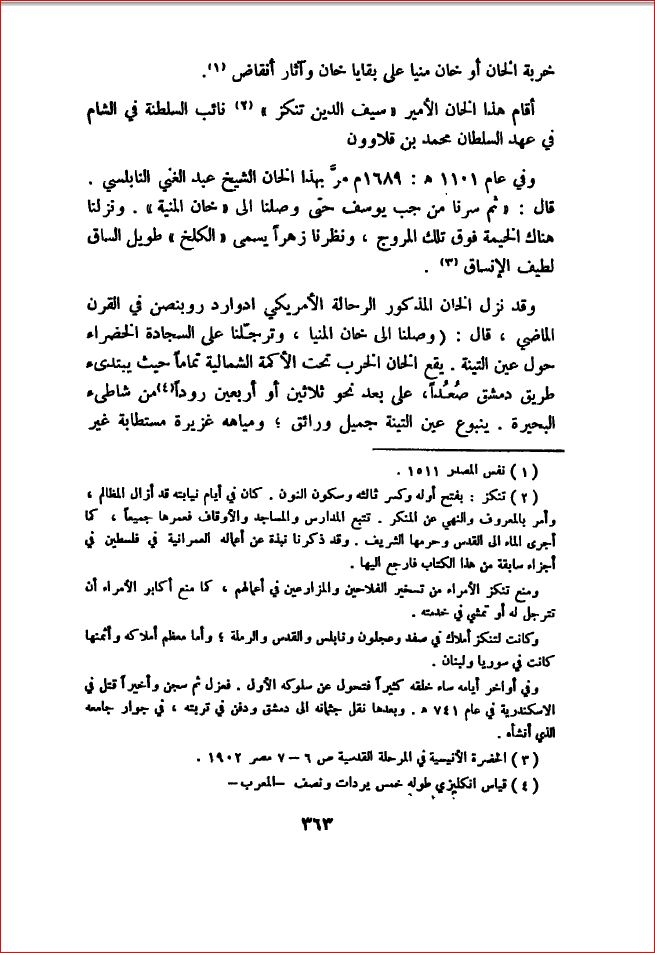 خربة الخان أو خان منيا على بقايا خان وآثار أنقاض (١).
أقام هذا الخان الأمير «سيف الدين تنكز» (٢) نائب السلطنة في الشام
في عهد السلطان محمد بن قلاوون
وفي عام ١١٠١ ه : ١٦٨٩م مرَّ بهذا الخان الشيخ عبد الغني النابلسي .
قال : «ثم سرنا من جب يوسف حتى وصلنا الى «خان المنية» . ونزلنا
هناك الخيمة فوق تلك المروج ، ونظرنا زهراً يسمى «الكلخ» طويل الساق
لطيف الإنساق (٣) .
وقد نزل الخان المذكور الرحالة الأمريكي ادوارد روبنصن في القرن
الماضي ، قال : (وصلنا الى خان المنيا ، وترجّلنا على السجادة الخضراء
حول عين التينة . يقع الخان الخرب تحت الأكمة الشمالية تماماً حيث يبتدىء
طريق دمشق صُعُداً، على بعد نحو ثلاثين أو أربعين روداً(٤)من شاطىء
البحيرة . ينبوع عين التينة جميل ورائق ؛ ومياهه غزيرة مستطابة غير
(١) نفس المصدر ١٥١١ .
(٢) تنكز : بفتح أوله وكسر ثالثه وسكون النون . كان في أيام نيابته قد أزال المظالم ،
وأمر بالمعروف والنهي عن المنكر . تتبع المدارس والمساجد والأوقاف فعمرها جميعاً ، كما
أجرى الماء الى القدس وحرمها الشريف . وقد ذكرنا نبذة عن أعماله العمرانية في فلسطين في
أجزاء سابقة من هذا الكتاب فارجع اليها .
ومنع تنكز الأمراء من تسخير الفلاحين والمزارعين في أعمالهم ، كما منع أكابر الأمراء أن
تترجل له أو تمشي في خدمته .
وكانت لتنكز أملاك في صفد وعجلون ونابلس والقدس والرملة ؛ وأما معظم أملاكه وأثمنها
كانت في سوريا ولبنان .
وفي أواخر أيامه ساء خلقه كثيراً فتحول عن سلوكه الأول . فعزل ثم سجن وأخيراً قتل في
الاسكندرية في عام ٧٤١ ه . وبعدها نقل جثمانه الى دمشق ودفن في تربته ، في جوار جامعه
الذي أنشأه .
(٣) الحضرة الأنيسية في المرحلة القدسية ص ٦ – ٧ مصر ١٩٠٢ .
(٤) قياس انكليزي طوله خمس يردات ونصف –المعرب–
٣٦٣